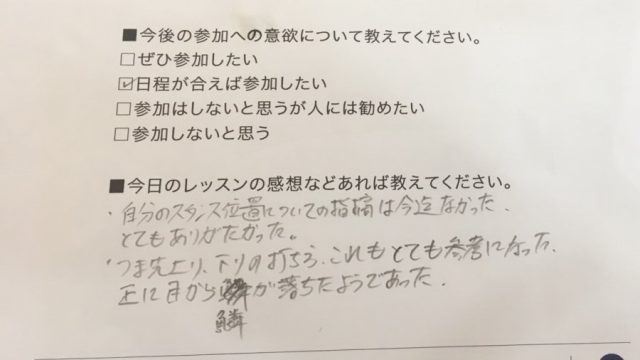 ■今後の参加への意欲について教えてください。
□ぜひ参加したい
☑日程が合えば参加したい
□参加はしないと思うが人には勧めたい
□参加しないと思う
■今日のレッスンの感想などあれば教えてください。
・自分のスタンス位置についての指摘は今迄なかった。
とてもありがたかった。
・つま先上り、下りの打ち方、これもとても参考になった、
正に目から が落ちたようであった。
鱗